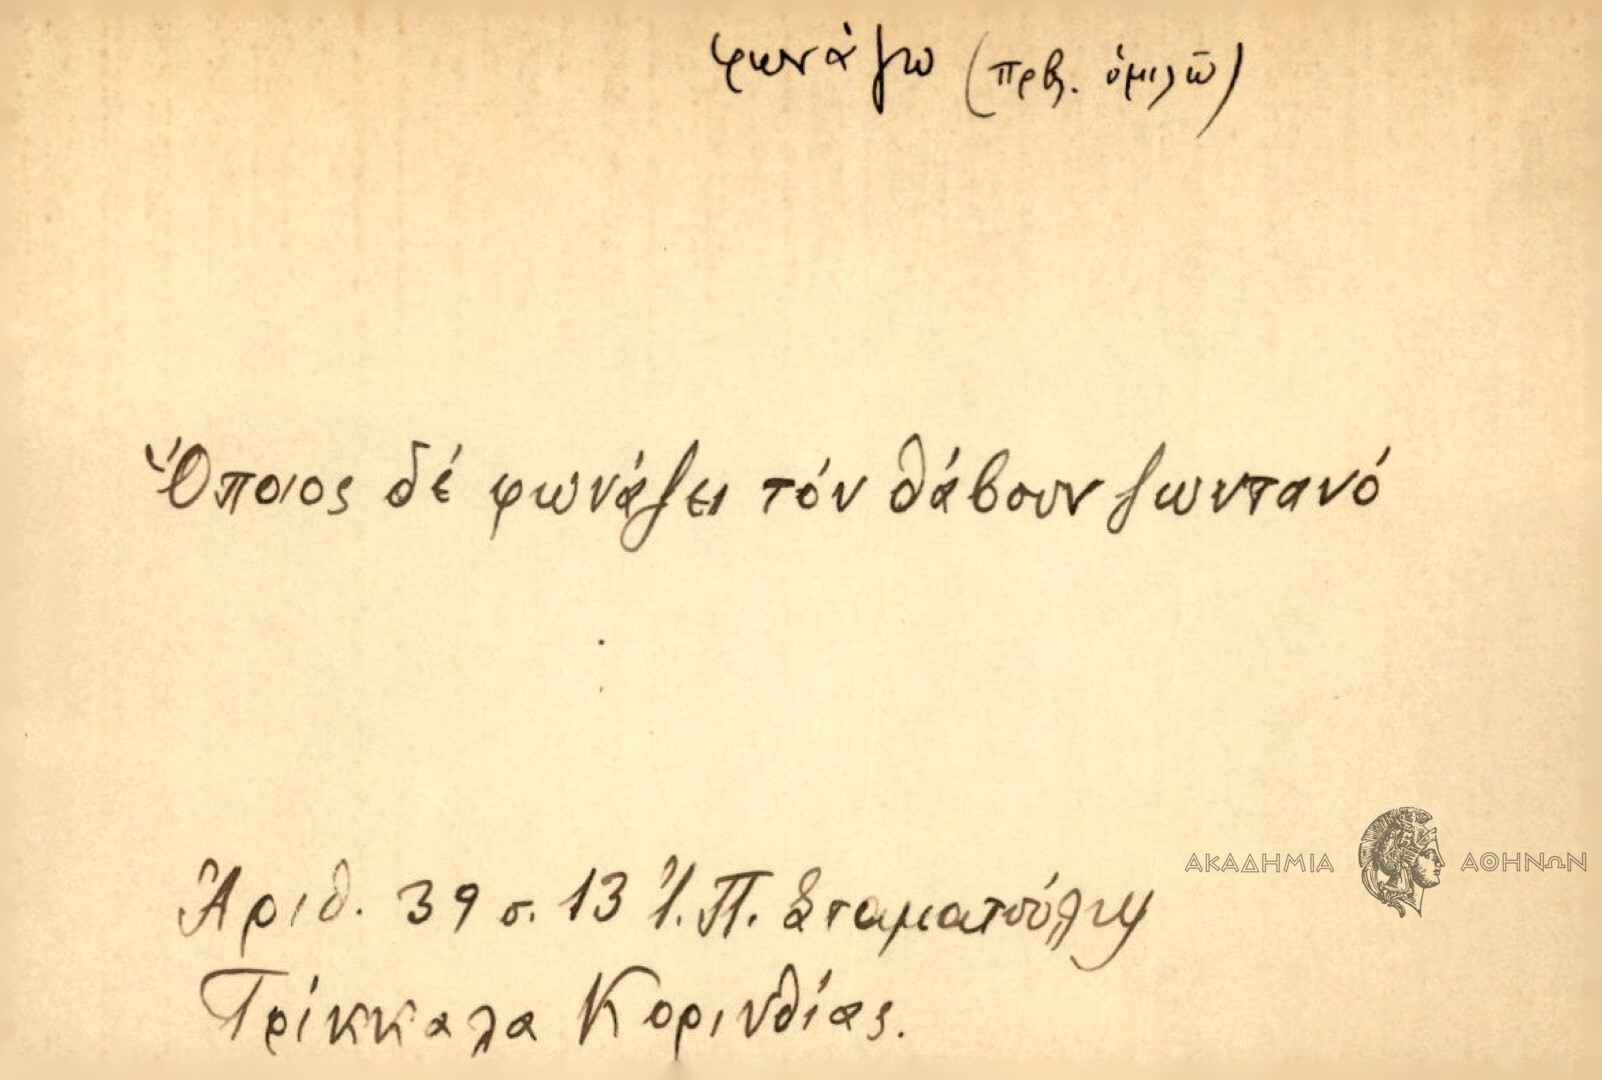 φωνάζω (πρβ. ὁμιλῶ)
Ὅποιος δέ φωνάζει τόν θάβουν ζωντανό
ΑΚΑΔΗΜΙΑ ΑΘΗΝΩΝ
Ἀριθ. 39 σ. 13 Ἰ. Π. Σταματούλης
Τρίκκαλα Κορινθίας.